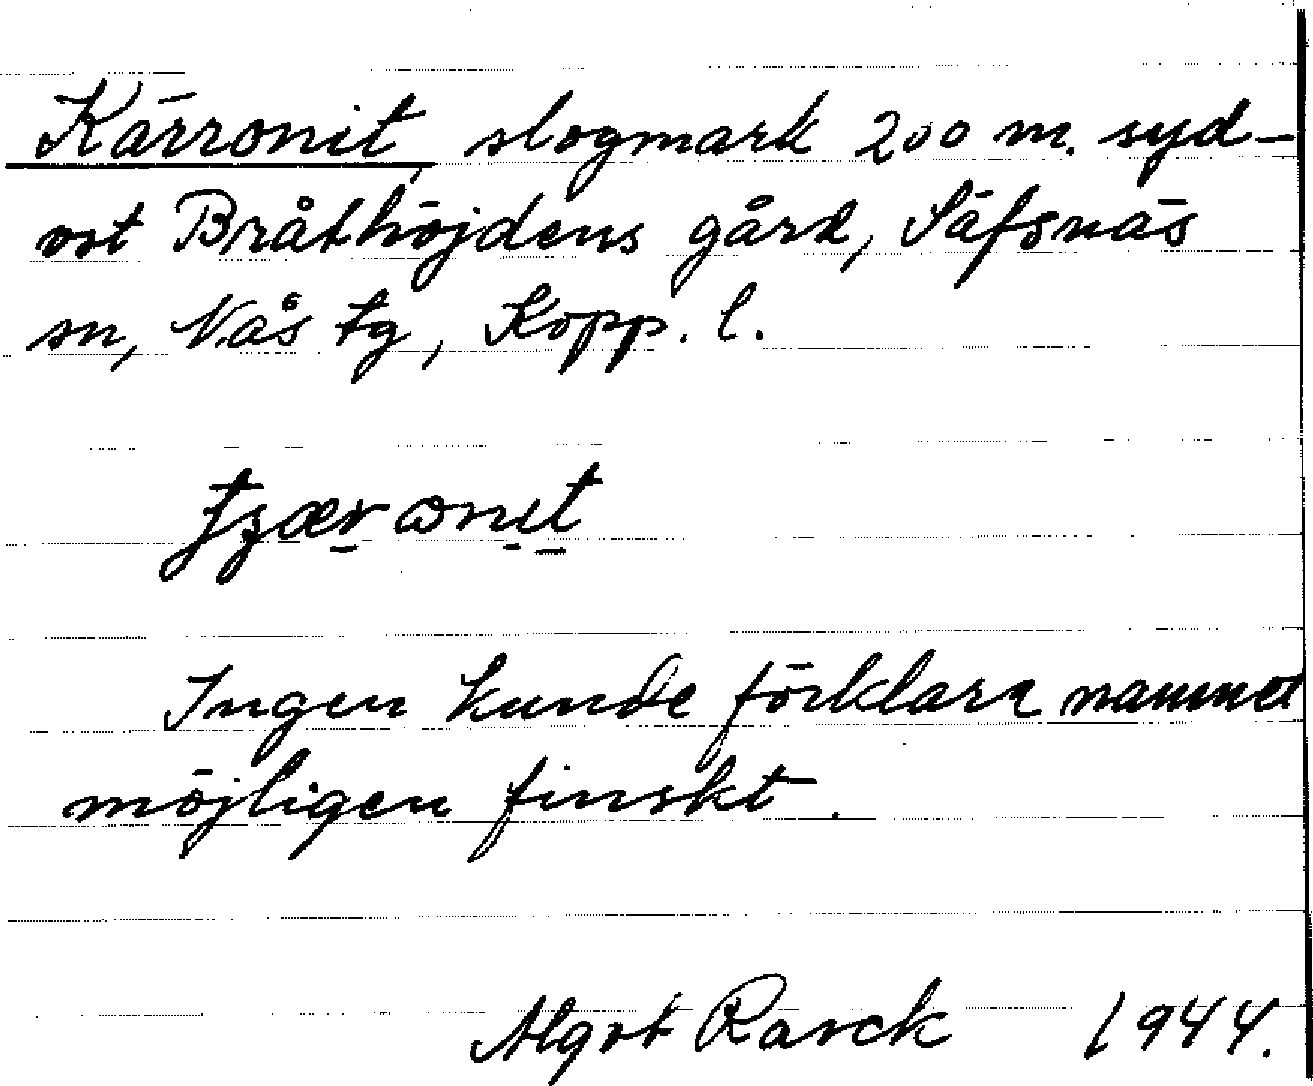 Kärronit, slogmark 200 m. syd-
ost Bråthöjdens gård, Säfsnäs
sn, Nås tg, Kopp. l.
Ingen kunde förklara namnet
möjligen finskt.
Algot Rarck 1944.